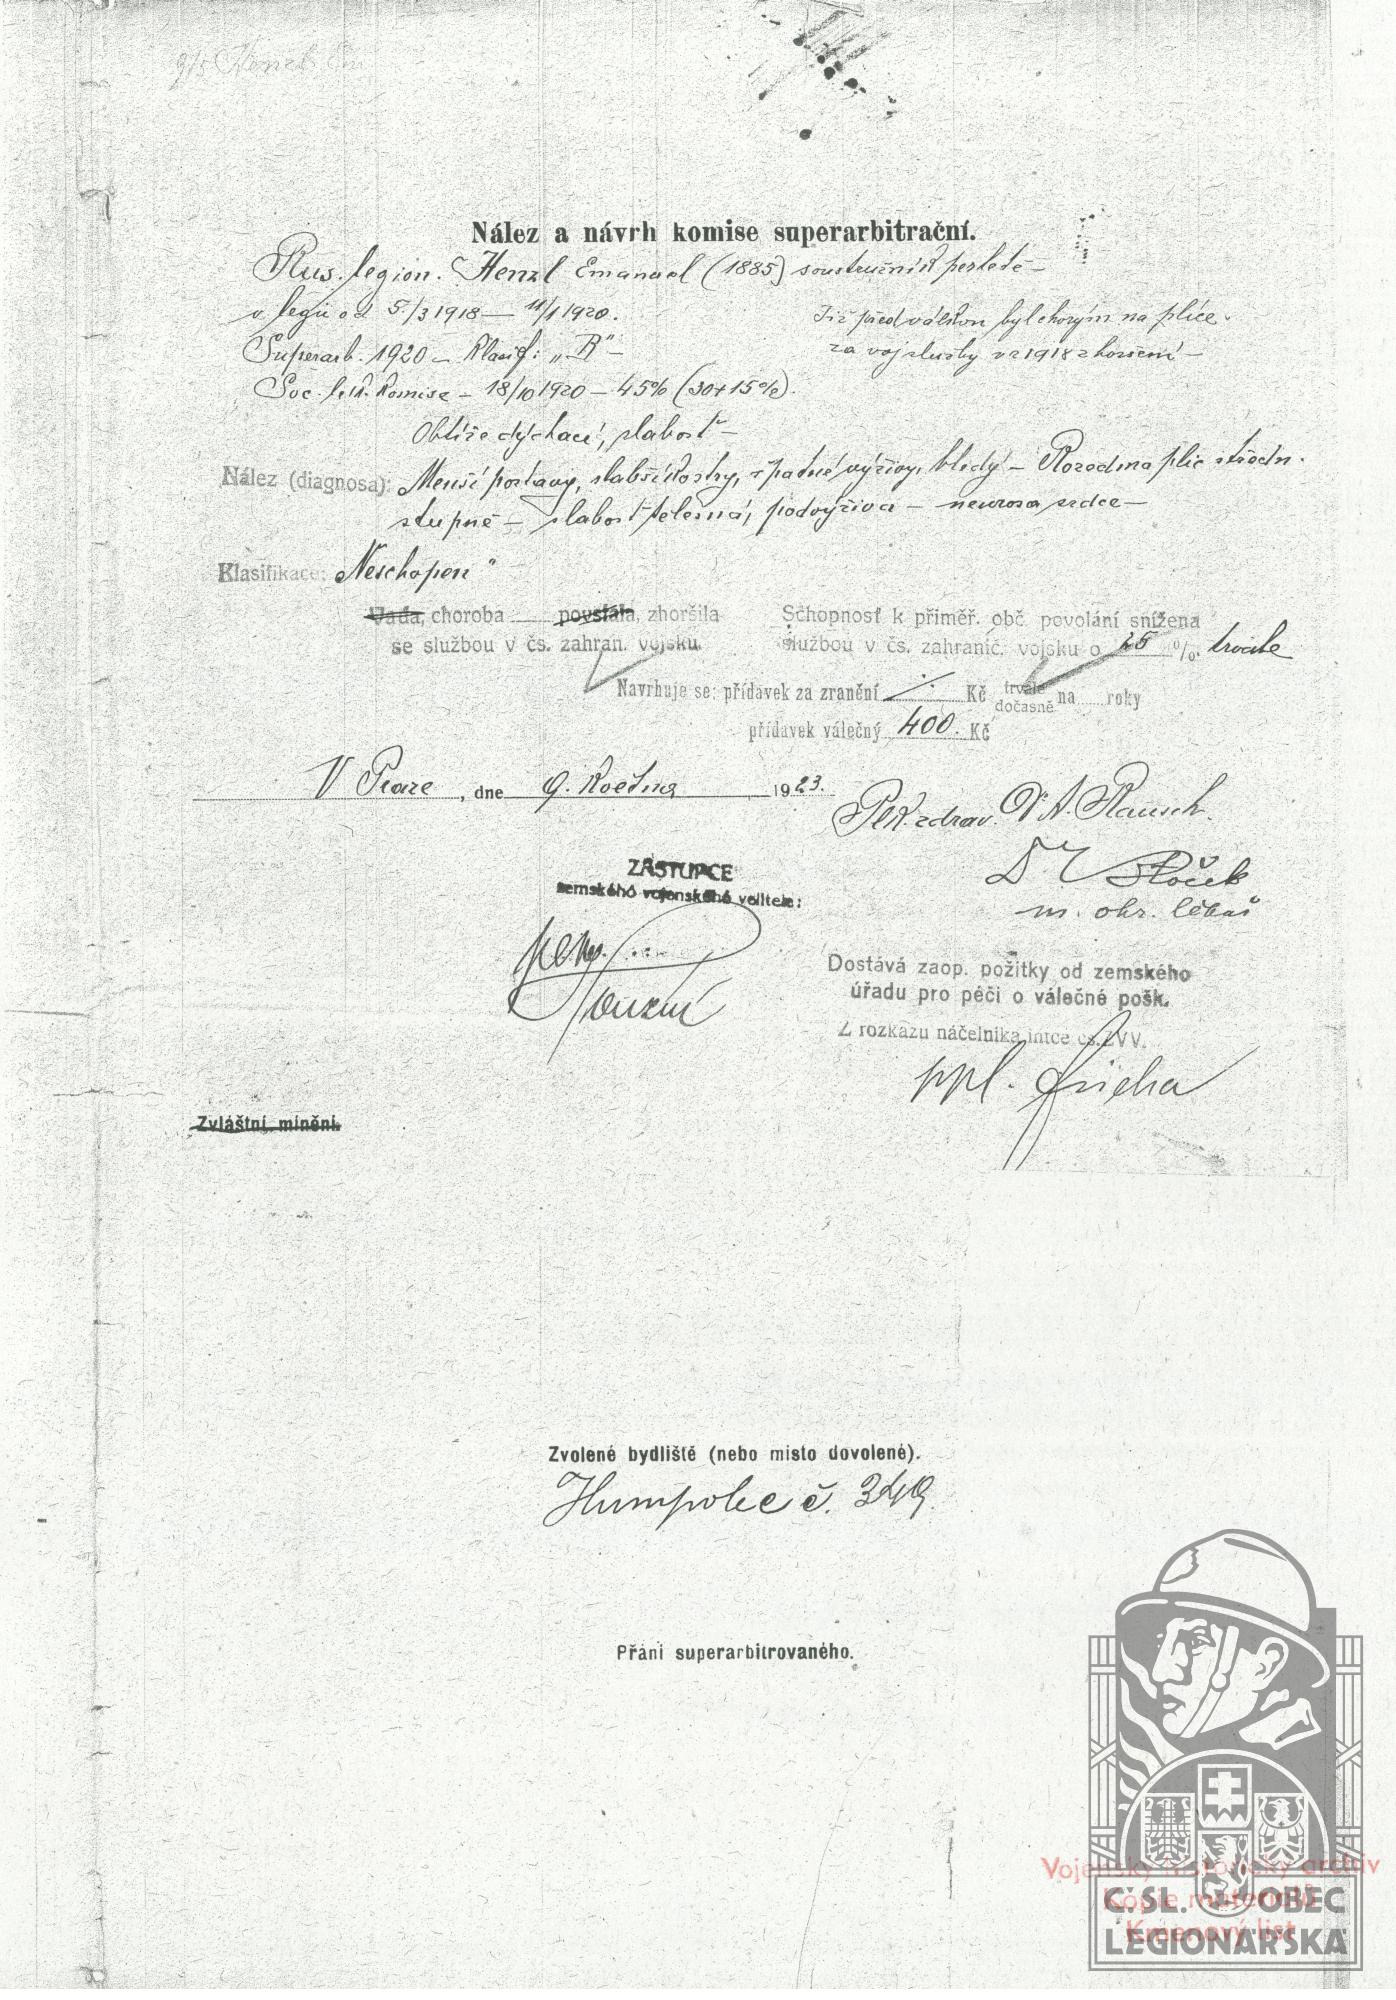 9/5 Henzl Em
Nález a návrh komise superarbitrační.
Rus. legion. Henzl Emanuel (1885) soustružník perletě –
v legii od 5./3 1918 – 11/1 1920.
Již před válkou byl chorým na plíce.
Superarb. 1920 – klasif: „B" –
za voj služby v r 1918 zhoršení –
Soc. lék. komise – 18/10 1920 – 45% (30+15%).
Obtíže dýchací, slabost –
Nález (diagnosa): Menší postavy, slabší kostry, špatné výživy, bledý – Rozedma plic středn.
stupně – slabost tělesná, podvýživa – neurosa srdce –
Klasifikace: „Neschopen"
Vada, choroba povstala, zhoršila
se službou v čs. zahran. vojsku.
Schopnosť k přiměř. obč. povolání snížena
službou v čs. zahranič. vojsku o 25 %. trvale
Navrhuje se: přídavek za zranění Kč trvale dočasně na roky
přídavek válečný 400. Kč
V Praze, dne 9. května 1923.
Plk. zdrav. Dr A. Rausch.
Dr
m. ohr. lékař
ZÁSTUPCE
zemského vojenského velitele:
Dostává zaop. požitky od zemského
úřadu pro péči o válečné pošk.
Z rozkazu náčelníka intce čs. ZVV.
ppl.
Zvláštní mínění.
Zvolené bydliště (nebo místo dovolené).
Humpolec č. 349.
Přání superarbitrovaného.
Vojenský historický archiv
Kopie materiálů
Kmenový list
Č.SL. OBEC
LEGIONÁŘSKÁ